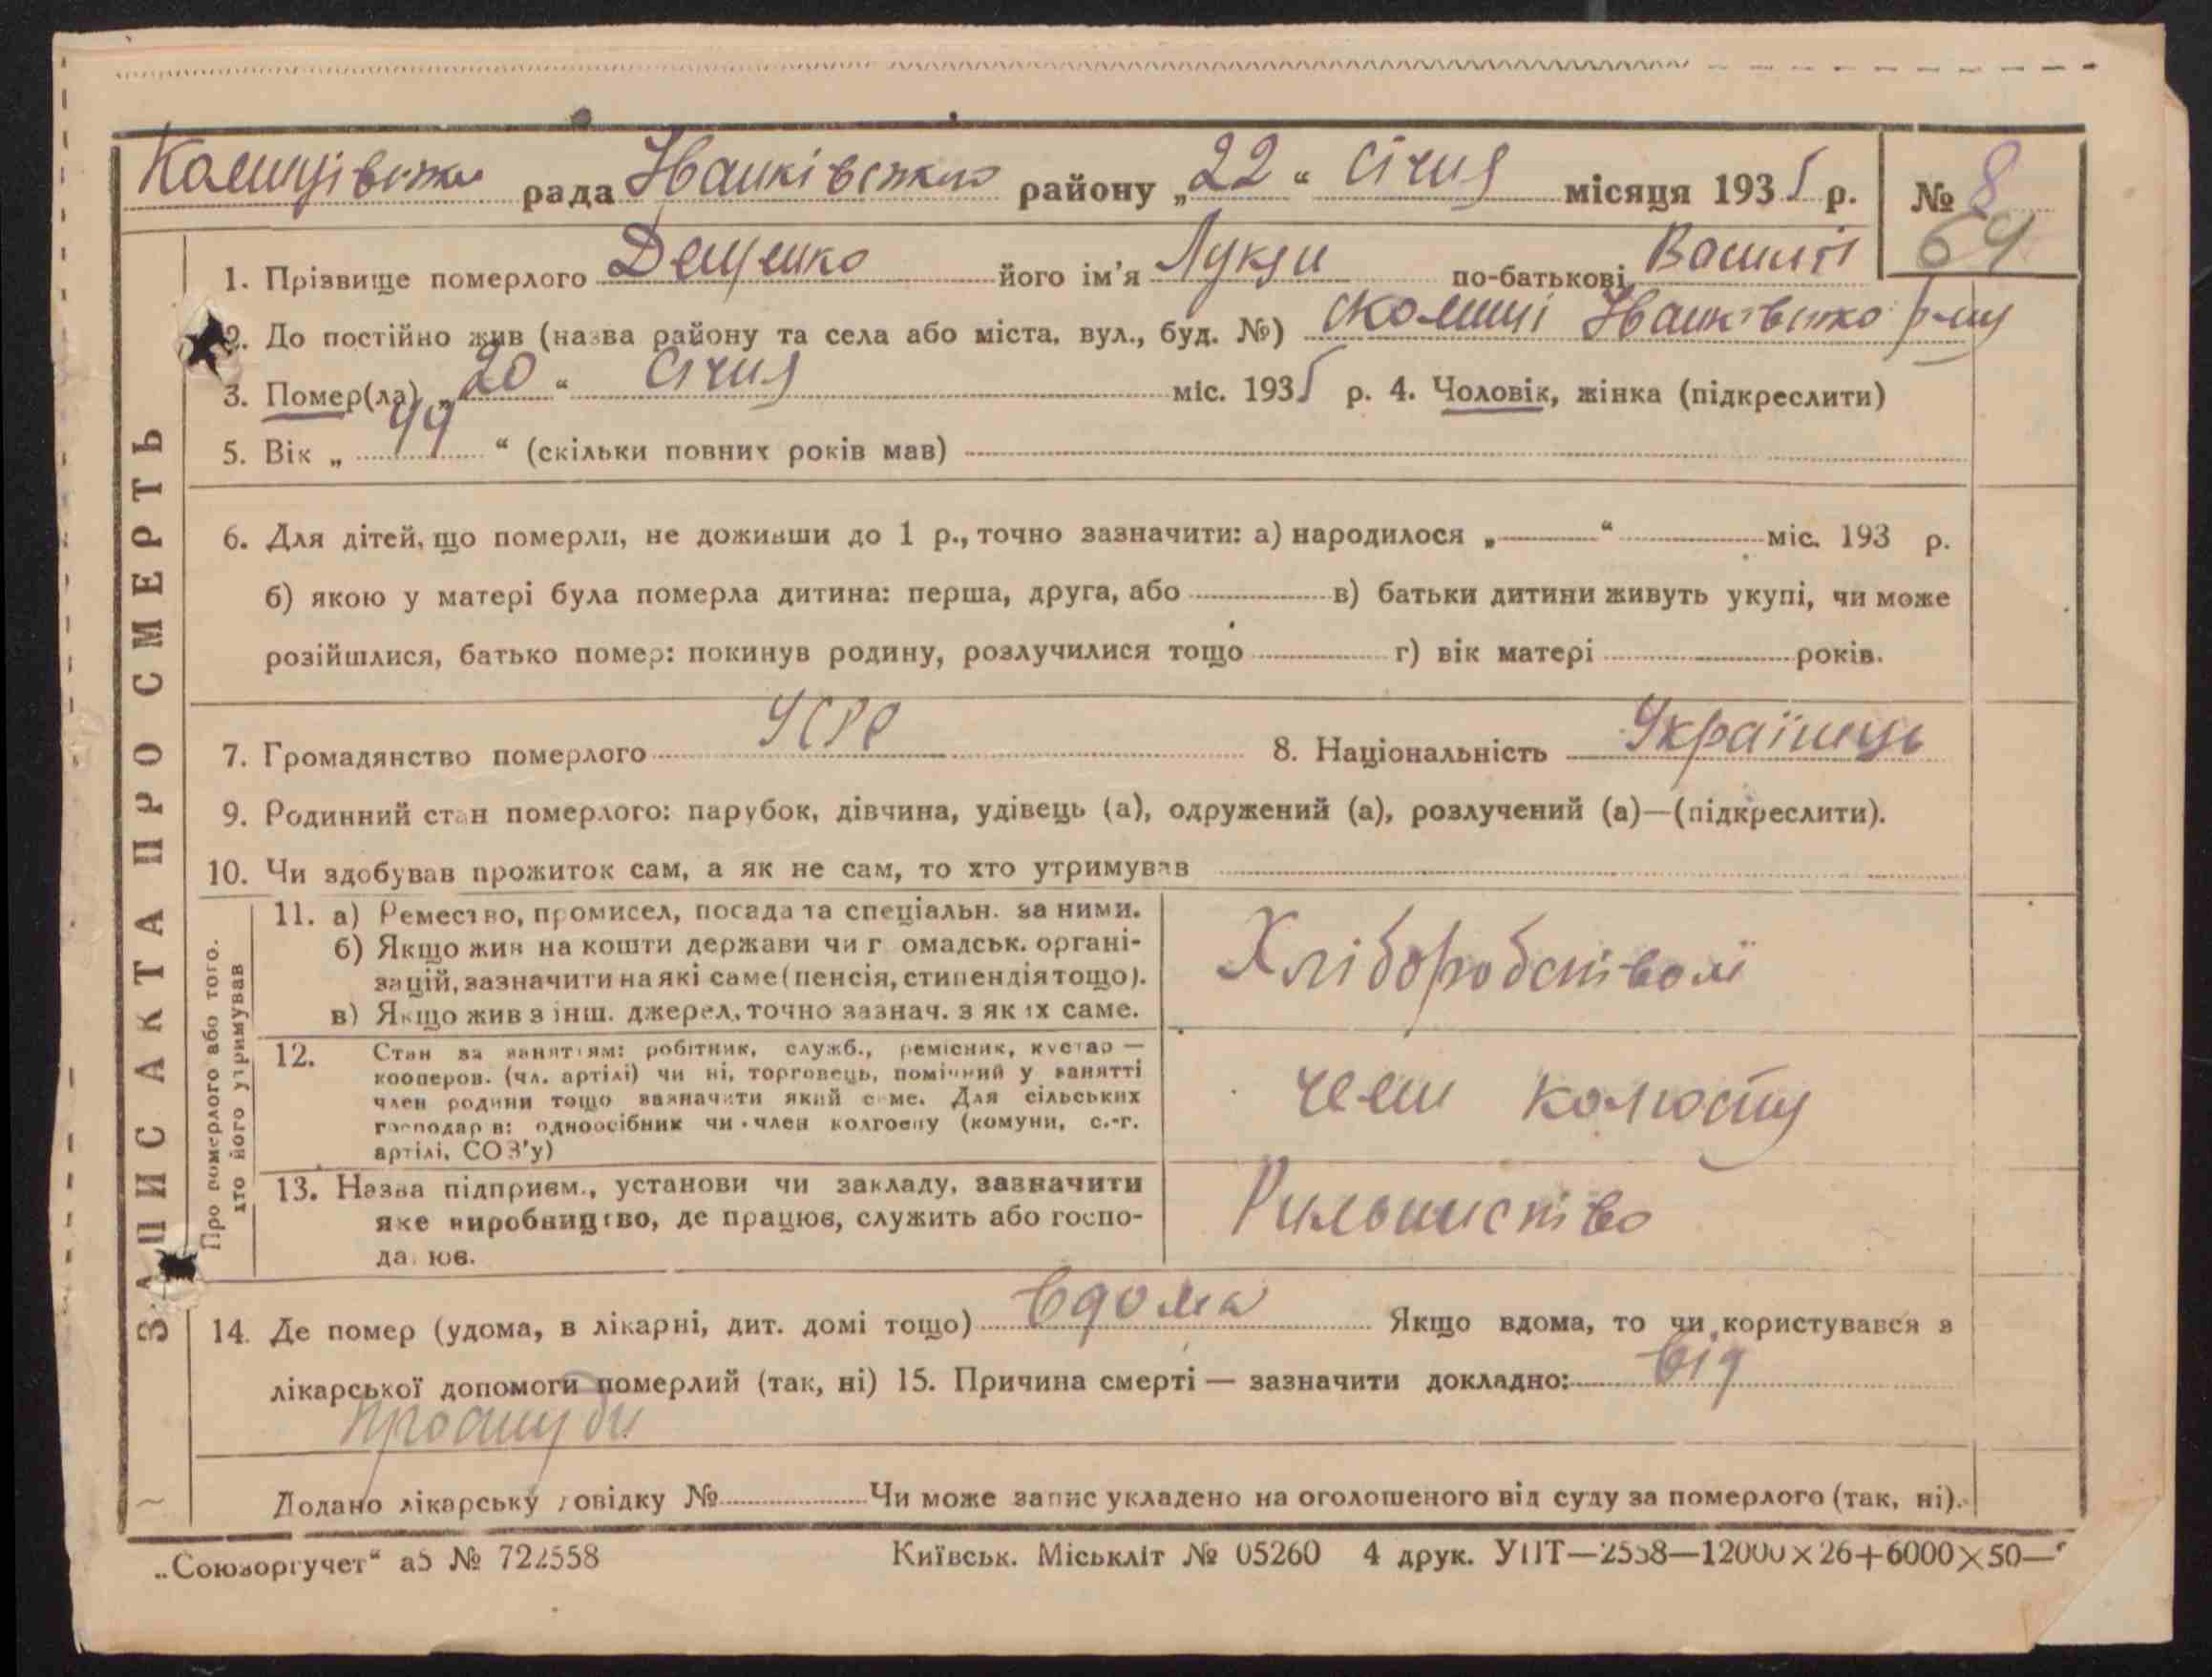 рада Іванківського району „22“ січня місяця 1935 р. № 8
64
1. Прізвище померлого Дещенко його ім'я Лукян по-батькові Василів
2. До постійно жив (назва району та села або міста, вул., буд. №)
3. Помер(ла) „20“ січня міс. 1935 р. 4. Чоловік, жінка (підкреслити)
5. Вік „ “ (скільки повних років мав)
6. Для дітей, що померли, не доживши до 1 р., точно зазначити: а) народилося „ “ міс. 193 р.
б) якою у матері була померла дитина: перша, друга, або в) батьки дитини живуть укупі, чи може
розійшлися, батько помер: покинув родину, розлучилися тощо г) вік матері років.
7. Громадянство померлого УСРР 8. Національність Українець
9. Родинний стан померлого: парубок, дівчина, удівець (а), одружений (а), розлучений (а)—(підкреслити).
10. Чи здобував прожиток сам, а як не сам, то хто утримував
ЗАПИС АКТА ПРО СМЕРТЬ
Про померлого або того.
хто його утримував
11. а) Ремество, промисел, посада та спеціальн. за ними.
б) Якщо жив на кошти держави чи громадськ. органі-
зацій, зазначити на які саме (пенсія, стипендія тощо).
в) Якщо жив з інш. джерел, точно зазнач. з яких саме.
Хліборобством
12. Стан за заняттям: робітник, служб., ремісник, кустар —
кооперов. (чл. артілі) чи ні, торговець, помічний у занятті
член родини тощо зазначити який саме. Для сільських
господарів: одноосібник чи член колгоспу (комуни, с.-г.
артілі, СОЗ'у)
член колгоспу
13. Назва підприєм., установи чи закладу, зазначити
яке виробництво, де працює, служить або госпо-
дарює.
Рильництво
14. Де помер (удома, в лікарні, дит. домі тощо) вдома Якщо вдома, то чи користувався з
лікарської допомоги померлий (так, ні) 15. Причина смерті — зазначити докладно: від
простуди
Додано лікарську довідку № Чи може запис укладено на оголошеного від суду за померлого (так, ні).
„Союзоргучет“ аб № 722558 Київськ. Міськліт № 05260 4 друк. УПТ—2558—12000×26+6000×50—